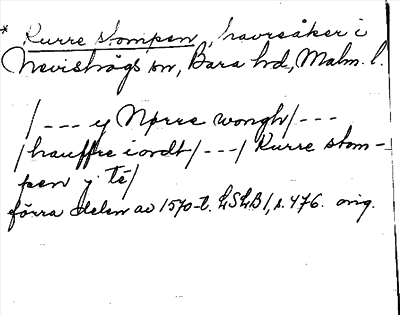 * Kurre stompen, havreåker i
Nevishögs sn, Bara hd, Malm. l.
/--- y Nørre wongh/---
/hauffre iordt/---/ Kurre stom-
pen y té/
förra delen av 1570-t. LSLB 1, s. 476. orig.